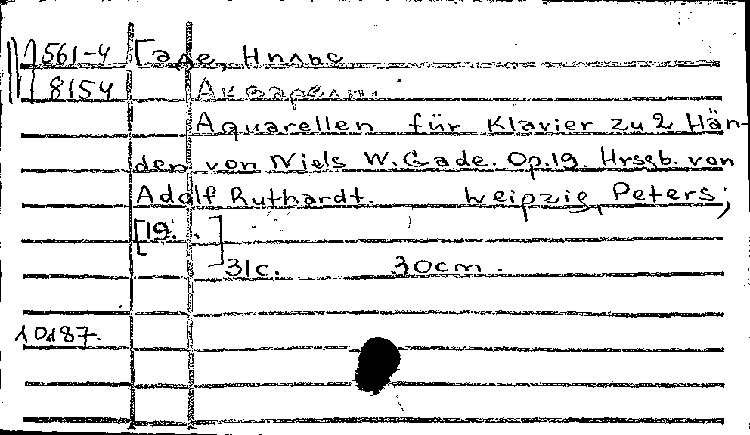 561-4 Гаде, Нильс
8154 Акварели.
Aquarellen für Klavier zu 2 Hän-
den von Niels W. Gade. Op.19. Hrsgb. von
Adolf Ruthardt. Leipzig, Peters,
[19. . ]
31c. 30cm.
10187.